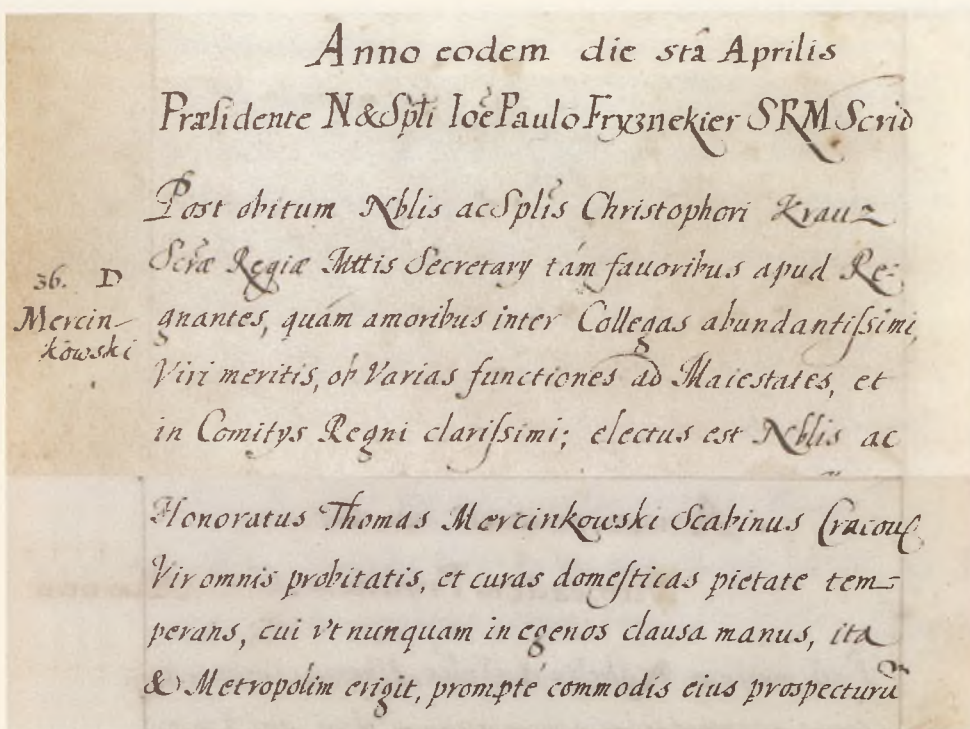 Anno eodem die sta Aprilis
Præsidente N & Spli Ioe Paulo Fryznekier SRM Scrio
Post obitum Nblis ac Splis Christophori Krauz
Scræ Regiæ Mttis Secretary tám fauoribus apud Re-
36. D
Mercin-
kowski
gnantes, quám amoribus inter Collegas abundantissimi,
Viri meritis, ob Varias functiones ad Maiestates, et
in Comitys Regni clarissimi; electus est Nblis ac
Honoratus Thomas Mercinkowski Scabinus Cracou
Vir omnis probitatis, et curas domesticas pietate tem-
perans, cui vt nunquam in egenos clausa manus, ita
& Metropolim erigit, prompté commodis eius prospecturũ